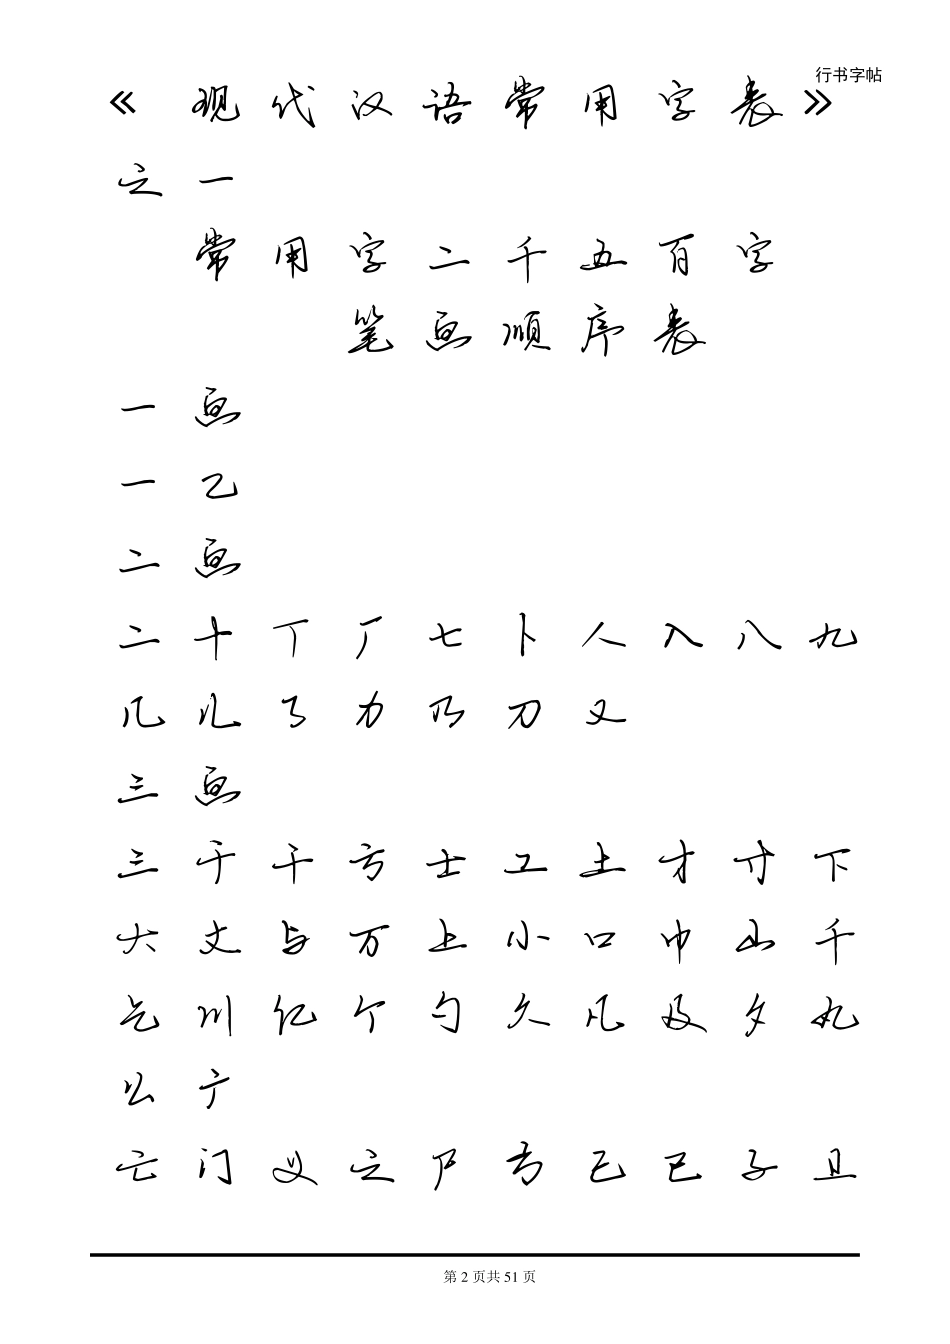 行书字帖
《现代汉语常用字表》
之一
常用字二千五百字
笔画顺序表
一画
一乙
二画
二十丁厂七卜人入八九
几儿了力乃刀又
三画
三于干亏士工土才寸下
大丈与万上小口巾山千
乞川亿个勺久凡及夕丸
么广
亡门义之尸弓己已子卫
第 2 页共 51 页